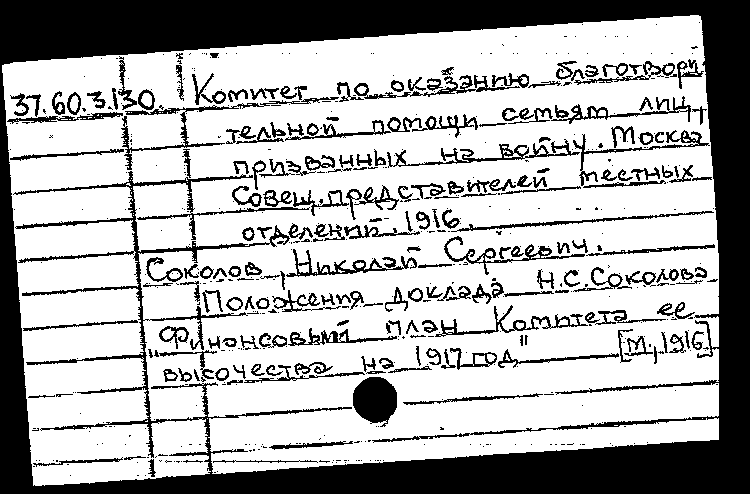 37.60.3.130. Комитет по оказанию благотвори
тельной помощи семьям лиц,
призванных на войну. Москва
Совещ. представителей местных
отделений. 1916.
Соколов, Николай Сергеевич.
Положения доклада Н.С.Соколова
"Финансовый план Комитета ее
высочества на 1917 год" [М., 1916]